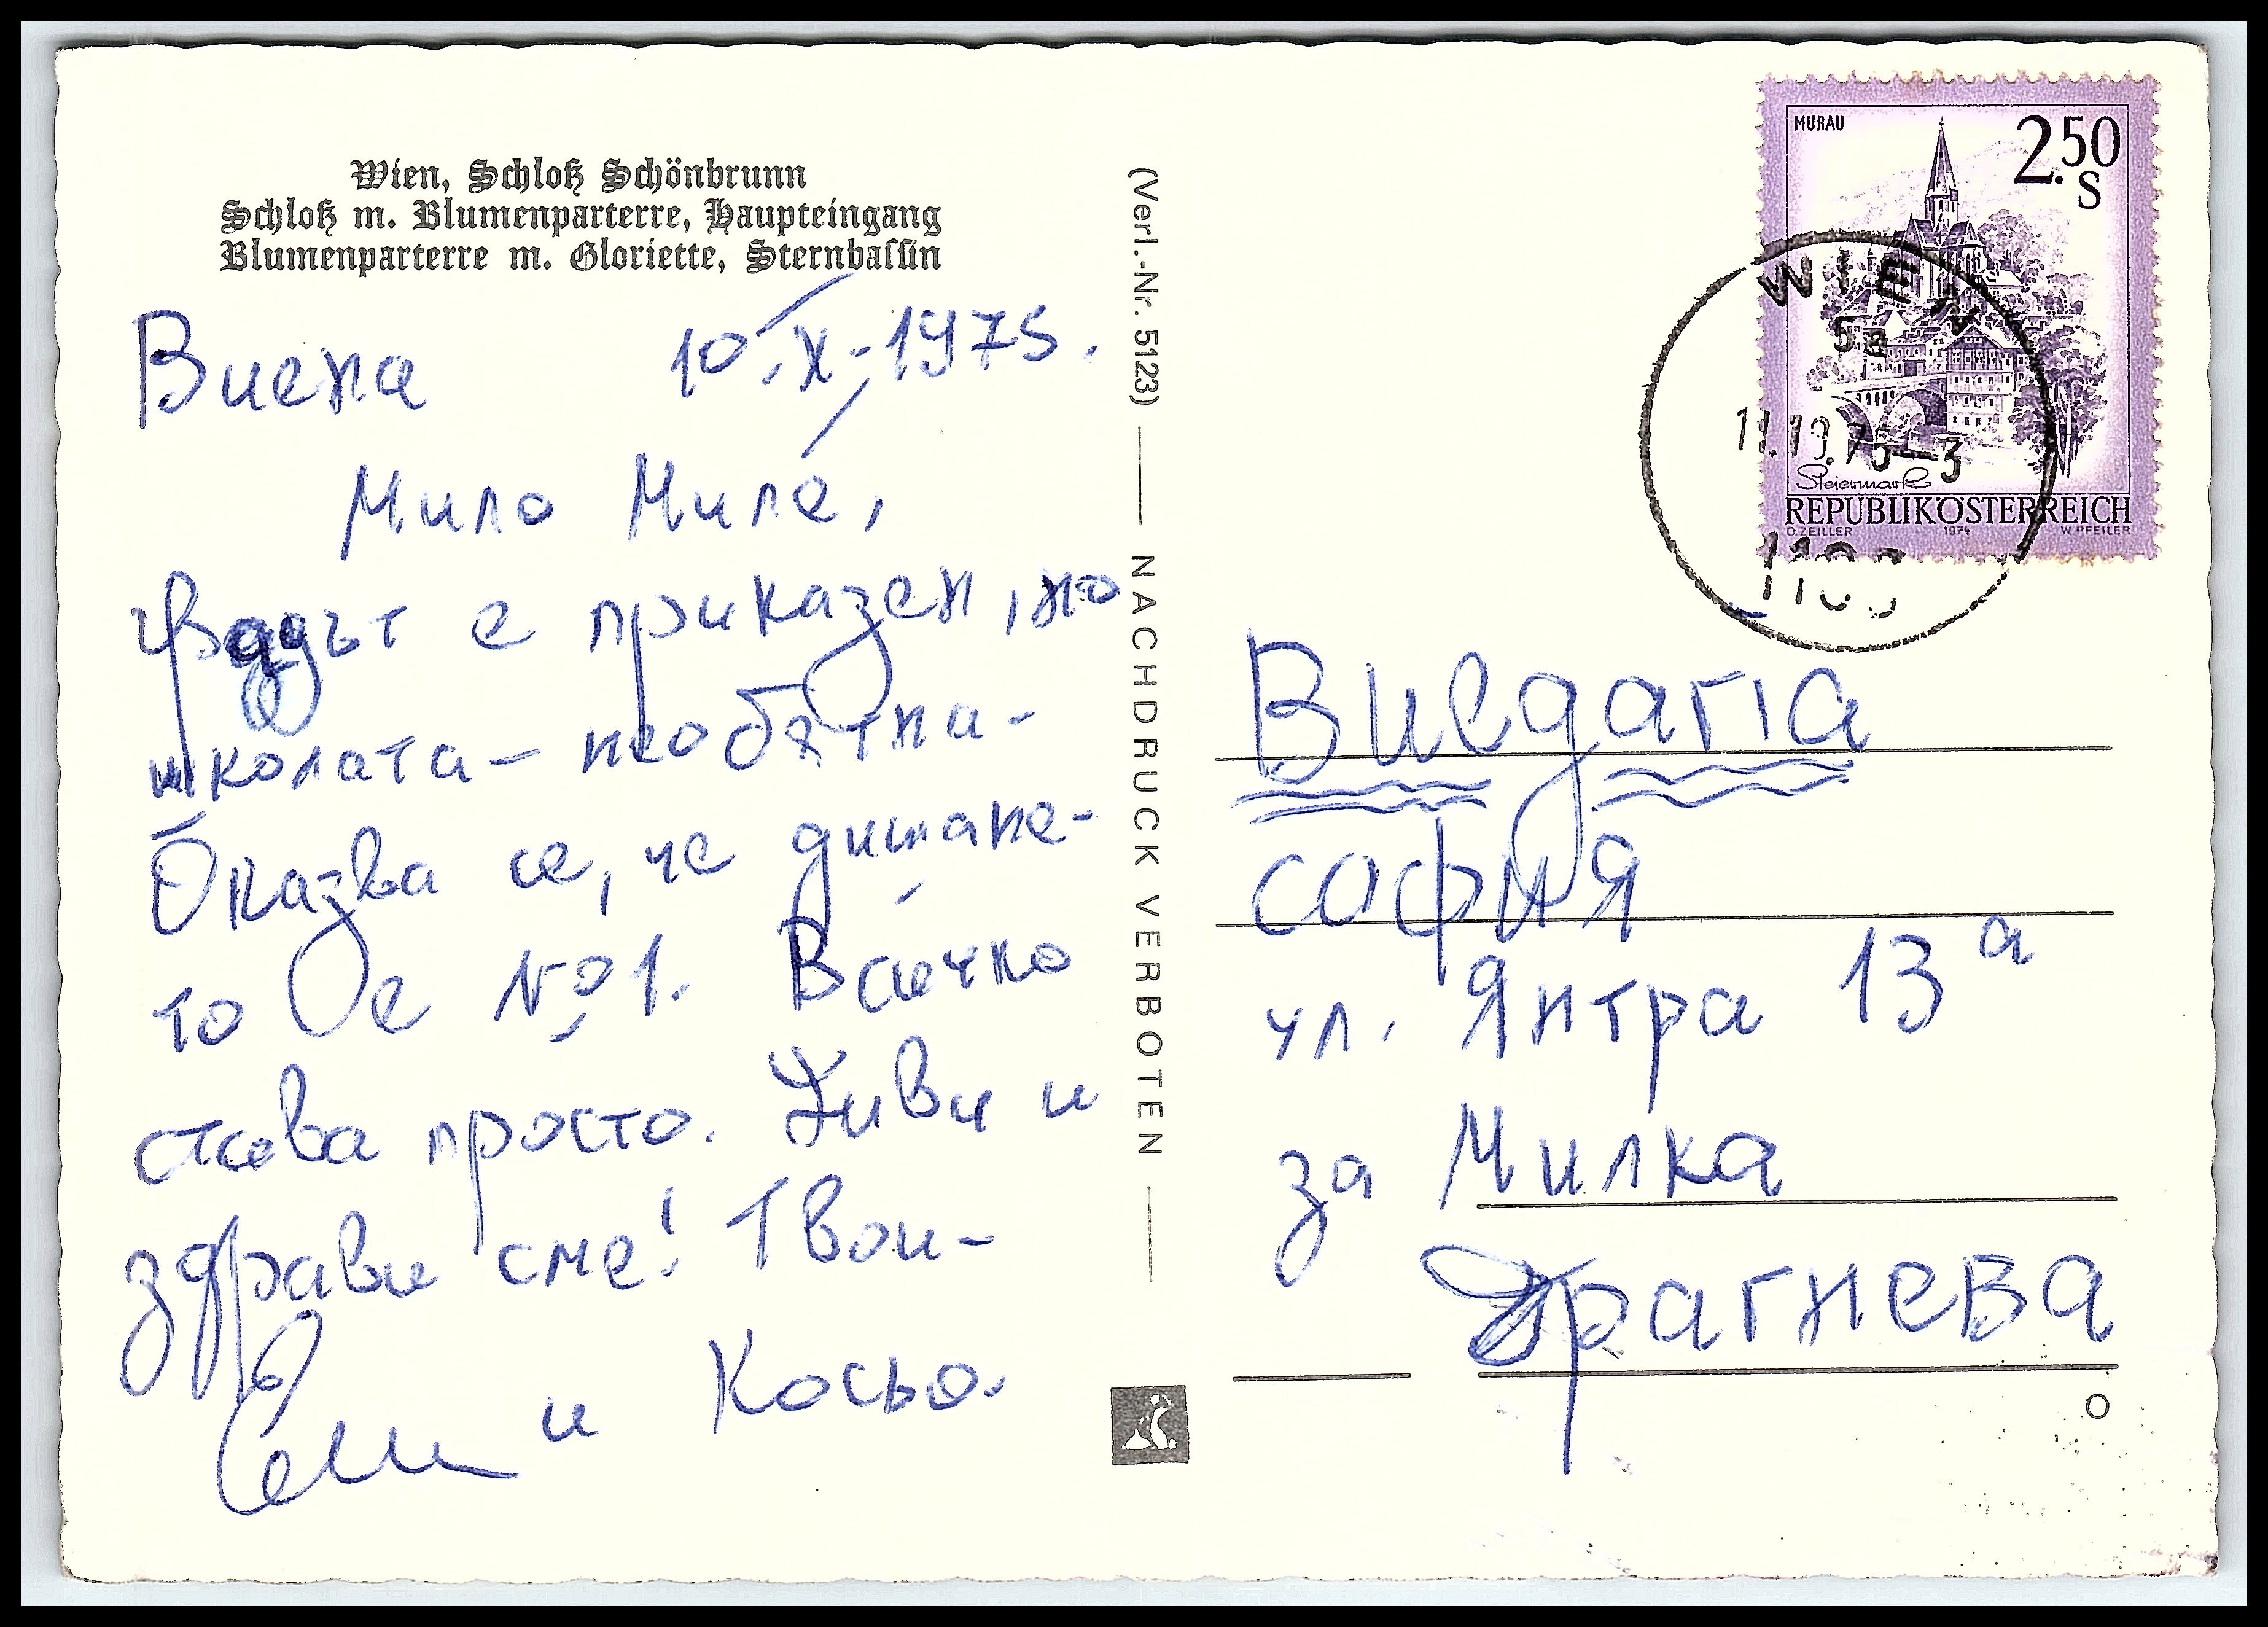 Wien, Schloß Schönbrunn
Schloß m. Blumenparterre, Haupteingang
Blumenparterre m. Gloriette, Sternbassin
Виена 10.X.1975.
Мило Миле,
градът е приказен, но
школата – необятна –
Оказва се, че дишане-
то е №1. Всичко
става просто. Живи и
здрави сме! Твои –
и Косьо.
(Verl.-Nr. 5123) — NACHDRUCK VERBOTEN —
MURAU
2.50
S
Steiermark
REPUBLIK ÖSTERREICH
O. ZEILLER 1974 W. PFEILER
WIEN
11.10.75-3
София
ул. Янтра 13а
за Милка
Драгнева